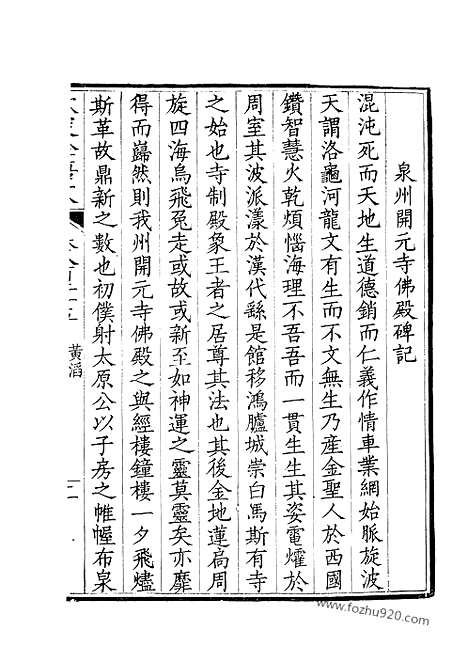 泉州開元寺佛殿碑記
混沌死而天地生道德銷而仁義作情車業網始脈旋波
天謂洛龜河龍文有生而不文無生乃産金聖人於西國
鑽智慧火乾煩惱海理不吾吾而一貫生生其姿電燿於
周室其波派漾於漢代繇是館移鴻臚城崇白馬斯有寺
之始也寺制殿象王者之居尊其法也其後金地蓮扃周
旋四海烏飛兔走或故或新至如神運之靈莫靈矣亦靡
得而巋然則我州開元寺佛殿之與經樓鐘樓一夕飛燼
斯革故鼎新之數也初僕射太原公以子房之帷幄布泉
黃滔
www.fozhu920.com